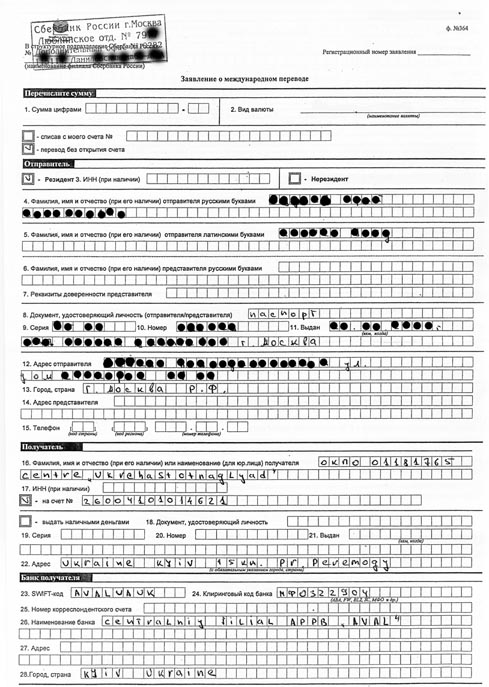 Сбербанк России г.Москва
Люблинское отд. № 79
ф. №364
В структурное подразделение Сбербанка России
№
Регистрационный номер заявления
(наименование филиала Сбербанка России)
Заявление о международном переводе
Перечислите сумму
1. Сумма цифрами - 2. Вид валюты
(наименование валюты)
- списав с моего счета №
- перевод без открытия счета
Отправитель
- Резидент 3. ИНН (при наличии) - Нерезидент
4. Фамилия, имя и отчество (при его наличии) отправителя русскими буквами
5. Фамилия, имя и отчество (при его наличии) отправителя латинскими буквами
6. Фамилия, имя и отчество (при его наличии) представителя русскими буквами
7. Реквизиты доверенности представителя
8. Документ, удостоверяющий личность (отправителя/представителя) паспорт
9. Серия 10. Номер 11. Выдан
(кем, когда)
г. Москва
12. Адрес отправителя ул.
дом
13. Город, страна г. Москва Р.Ф.
14. Адрес представителя
15. Телефон
(код страны) (код региона) (номер телефона)
Получатель
16. Фамилия, имя и отчество (при его наличии) или наименование (для юр.лица) получателя ОКПО 01181765
centre "Ukrehastotnaglyad"
17. ИНН (при наличии)
- на счет № 26004101014621
- выдать наличными деньгами 18. Документ, удостоверяющий личность
19. Серия 20. Номер 21. Выдан
(кем, когда)
22. Адрес Ukraine Kyiv 15km. Pr. Peremogy
(с обязательным указанием города, страны)
Банк получателя
23. SWIFT-код AVALUAUK 24. Клиринговый код банка МФО322904
25. Номер корреспондентского счета
26. Наименование банка centralniy filial APPB "AVAL"
27. Адрес
28.Город, страна Kyiv Ukraine